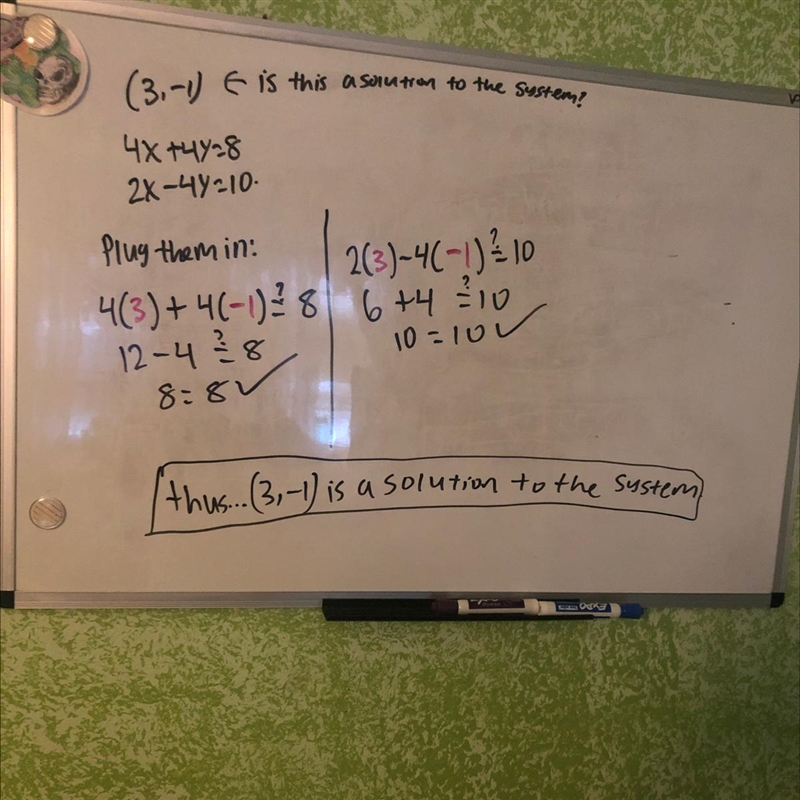 (3,-1) ← is this a solution to the system?
4x+4y=8
2x-4y=10.
Plug them in:
4(3) + 4(-1) ≟ 8
12 - 4 ≟ 8
8 = 8 ✓
2(3)-4(-1) ≟ 10
6 +4 ≟ 10
10 = 10 ✓
thus...(3,-1) is a solution to the system
EXPO